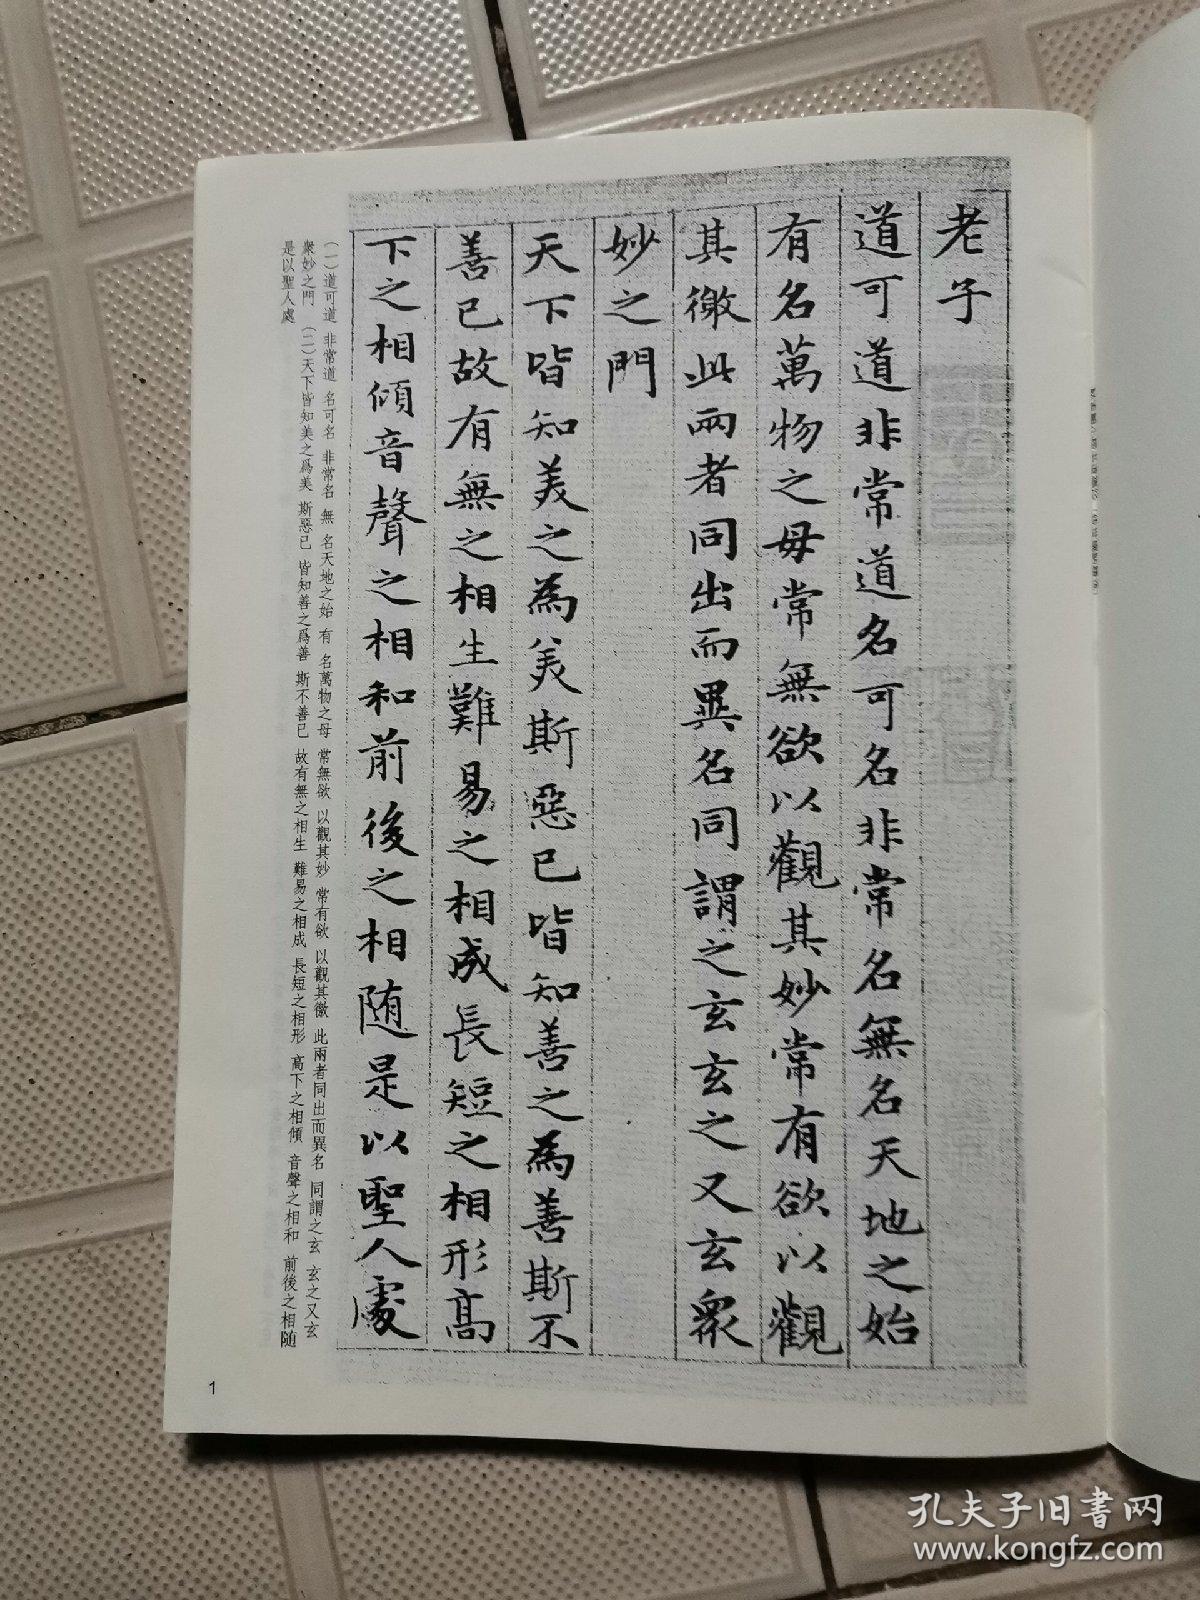 老子
道可道非常道名可名非常名無名天地之始
有名萬物之母常無欲以觀其妙常有欲以觀
其徼此兩者同出而異名同謂之玄玄之又玄衆
妙之門
天下皆知美之為美斯惡已皆知善之為善斯不
善已故有無之相生難易之相成長短之相形高
下之相傾音聲之相和前後之相随是以聖人處
(一)道可道 非常道 名可名 非常名 無 名天地之始 有 名萬物之母 常無欲 以觀其妙 常有欲 以觀其徼 此兩者同出而異名 同謂之玄 玄之又玄
衆妙之門 (二)天下皆知美之爲美 斯惡已 皆知善之爲善 斯不善已 故有無之相生 難易之相成 長短之相形 高下之相傾 音聲之相和 前後之相随
是以聖人處
1
孔夫子旧書网
www.kongfz.com